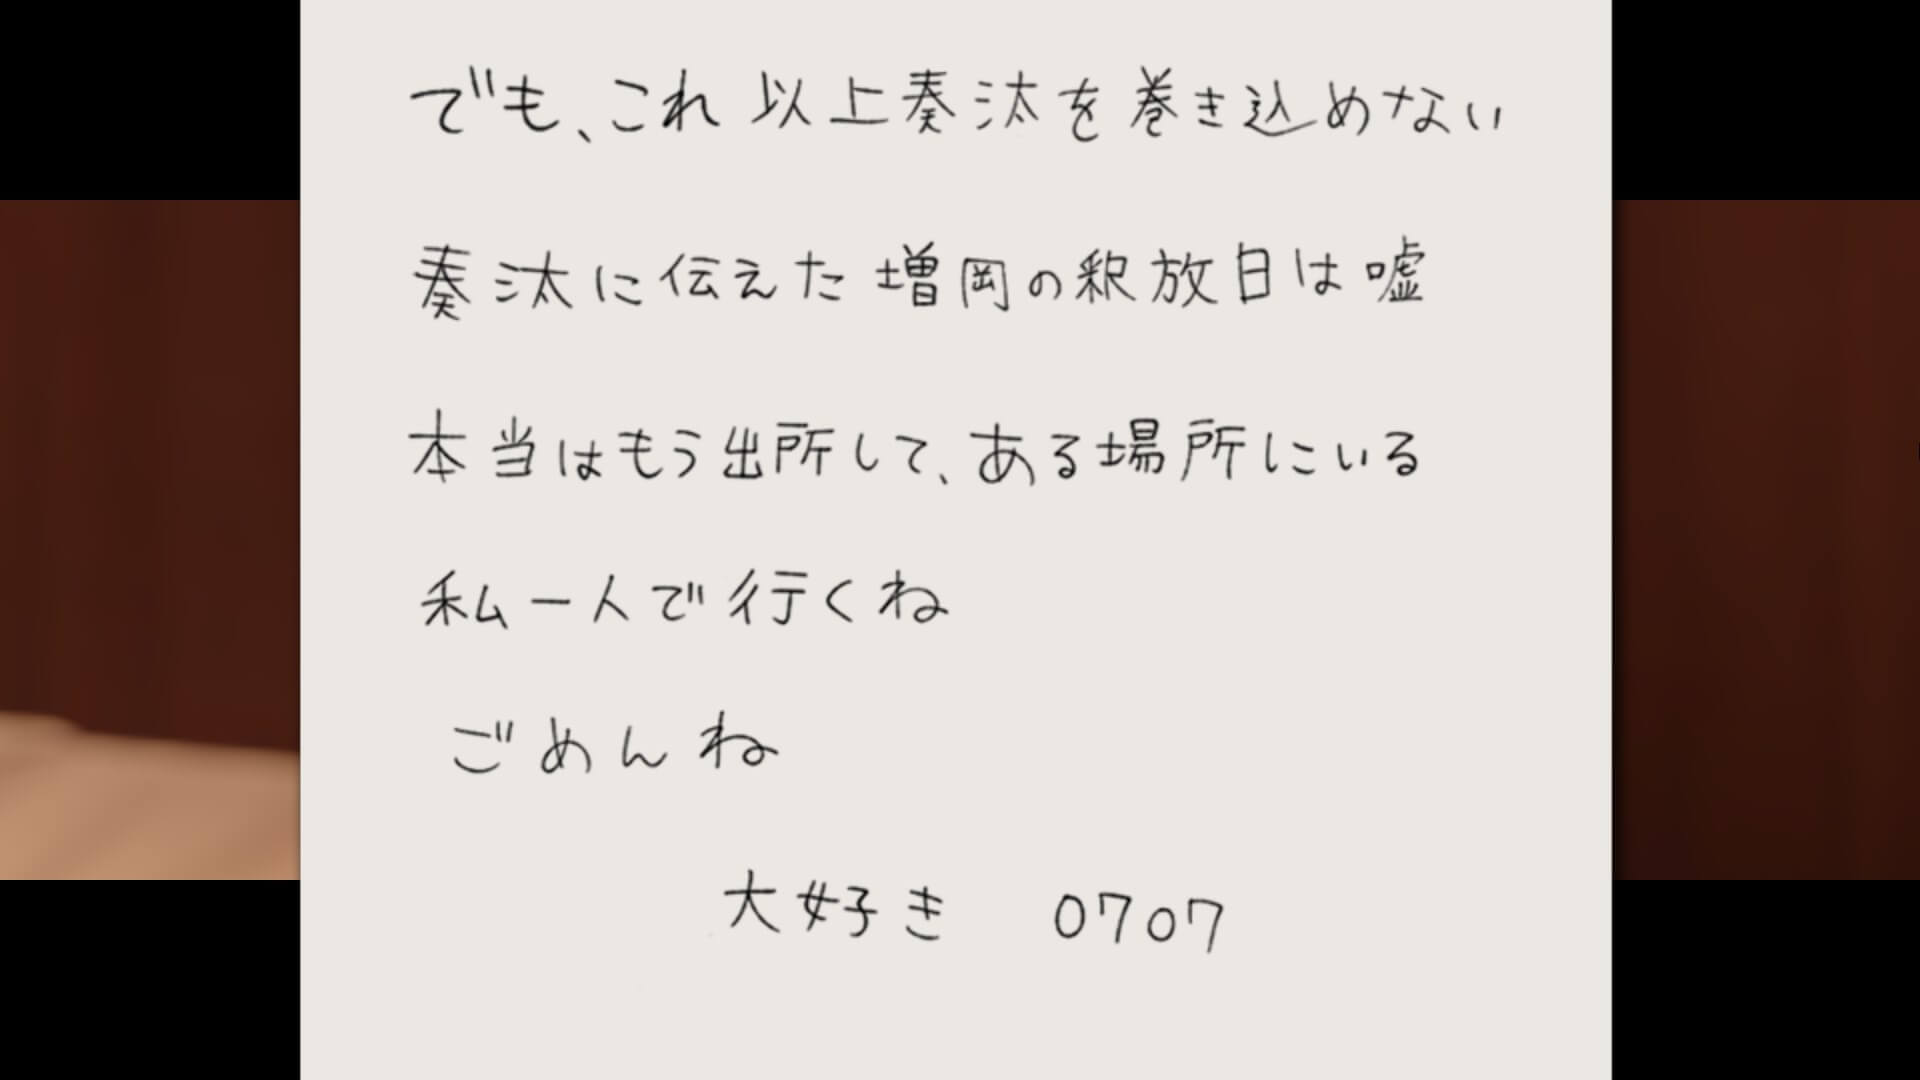 でも、これ以上奏汰を巻き込めない
奏汰に伝えた増岡の釈放日は嘘
本当はもう出所して、ある場所にいる
私一人で行くね
ごめんね
大好き 0707